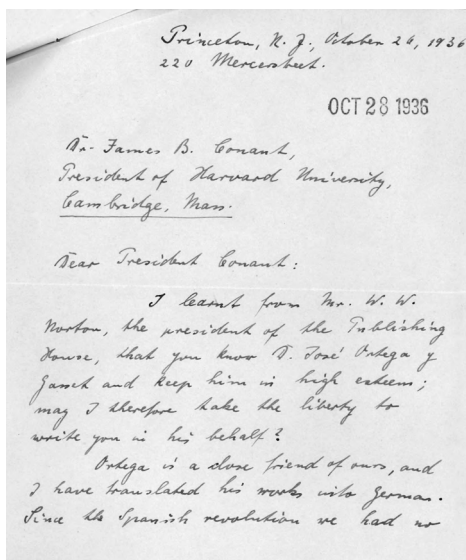 Princeton, N. J., October 26, 1936
220 Mercerstreet.
OCT 28 1936
Dr. James B. Conant,
President of Harvard University,
Cambridge, Mass.
Dear President Conant:
I learnt from Mr. W. W.
Norton, the president of the Publishing
House, that you know D. José Ortega y
Gasset and keep him in high esteem;
may I therefore take the liberty to
write you in his behalf?
Ortega is a close friend of ours, and
I have translated his works into German.
Since the Spanish revolution we had no